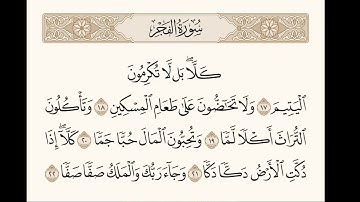 سُورَةُ الفَجْرِ
كَلَّاۖ بَل لَّا تُكْرِمُونَ
ٱلْيَتِيمَ ١٧ وَلَا تَحَٰٓضُّونَ عَلَىٰ طَعَامِ ٱلْمِسْكِينِ ١٨ وَتَأْكُلُونَ
ٱلتُّرَاثَ أَكْلًا لَّمًّا ١٩ وَتُحِبُّونَ ٱلْمَالَ حُبًّا جَمًّا ٢٠ كَلَّآۖ إِذَا
دُكَّتِ ٱلْأَرْضُ دَكًّا دَكًّا ٢١ وَجَآءَ رَبُّكَ وَٱلْمَلَكُ صَفًّا صَفًّا ٢٢